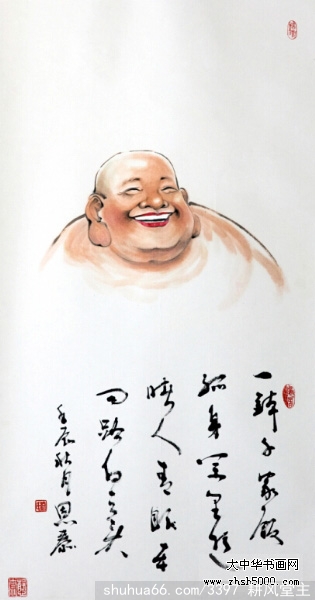 一鉢千家飯
孤身万里遊
睹人青眼
问路白云头
壬辰秋月恩
大中华书画网
www.zhsb5000.com
shuhua66.com/3397 耕风堂主